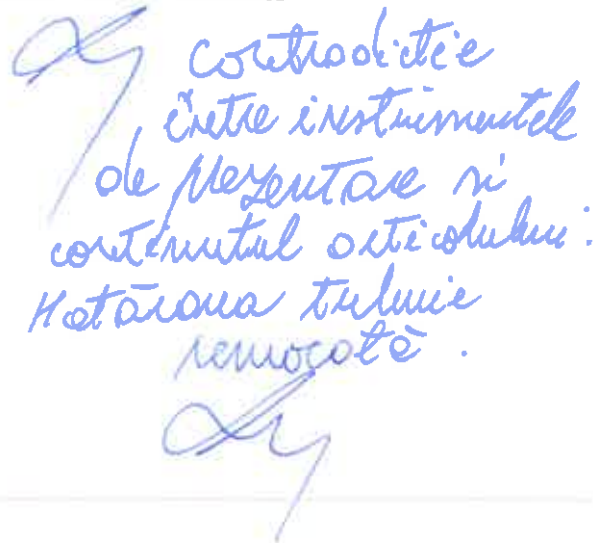 contradicție
între instrumentele
de prezentare și
conținutul articolului:
Hotărârea trebuie
revocată.